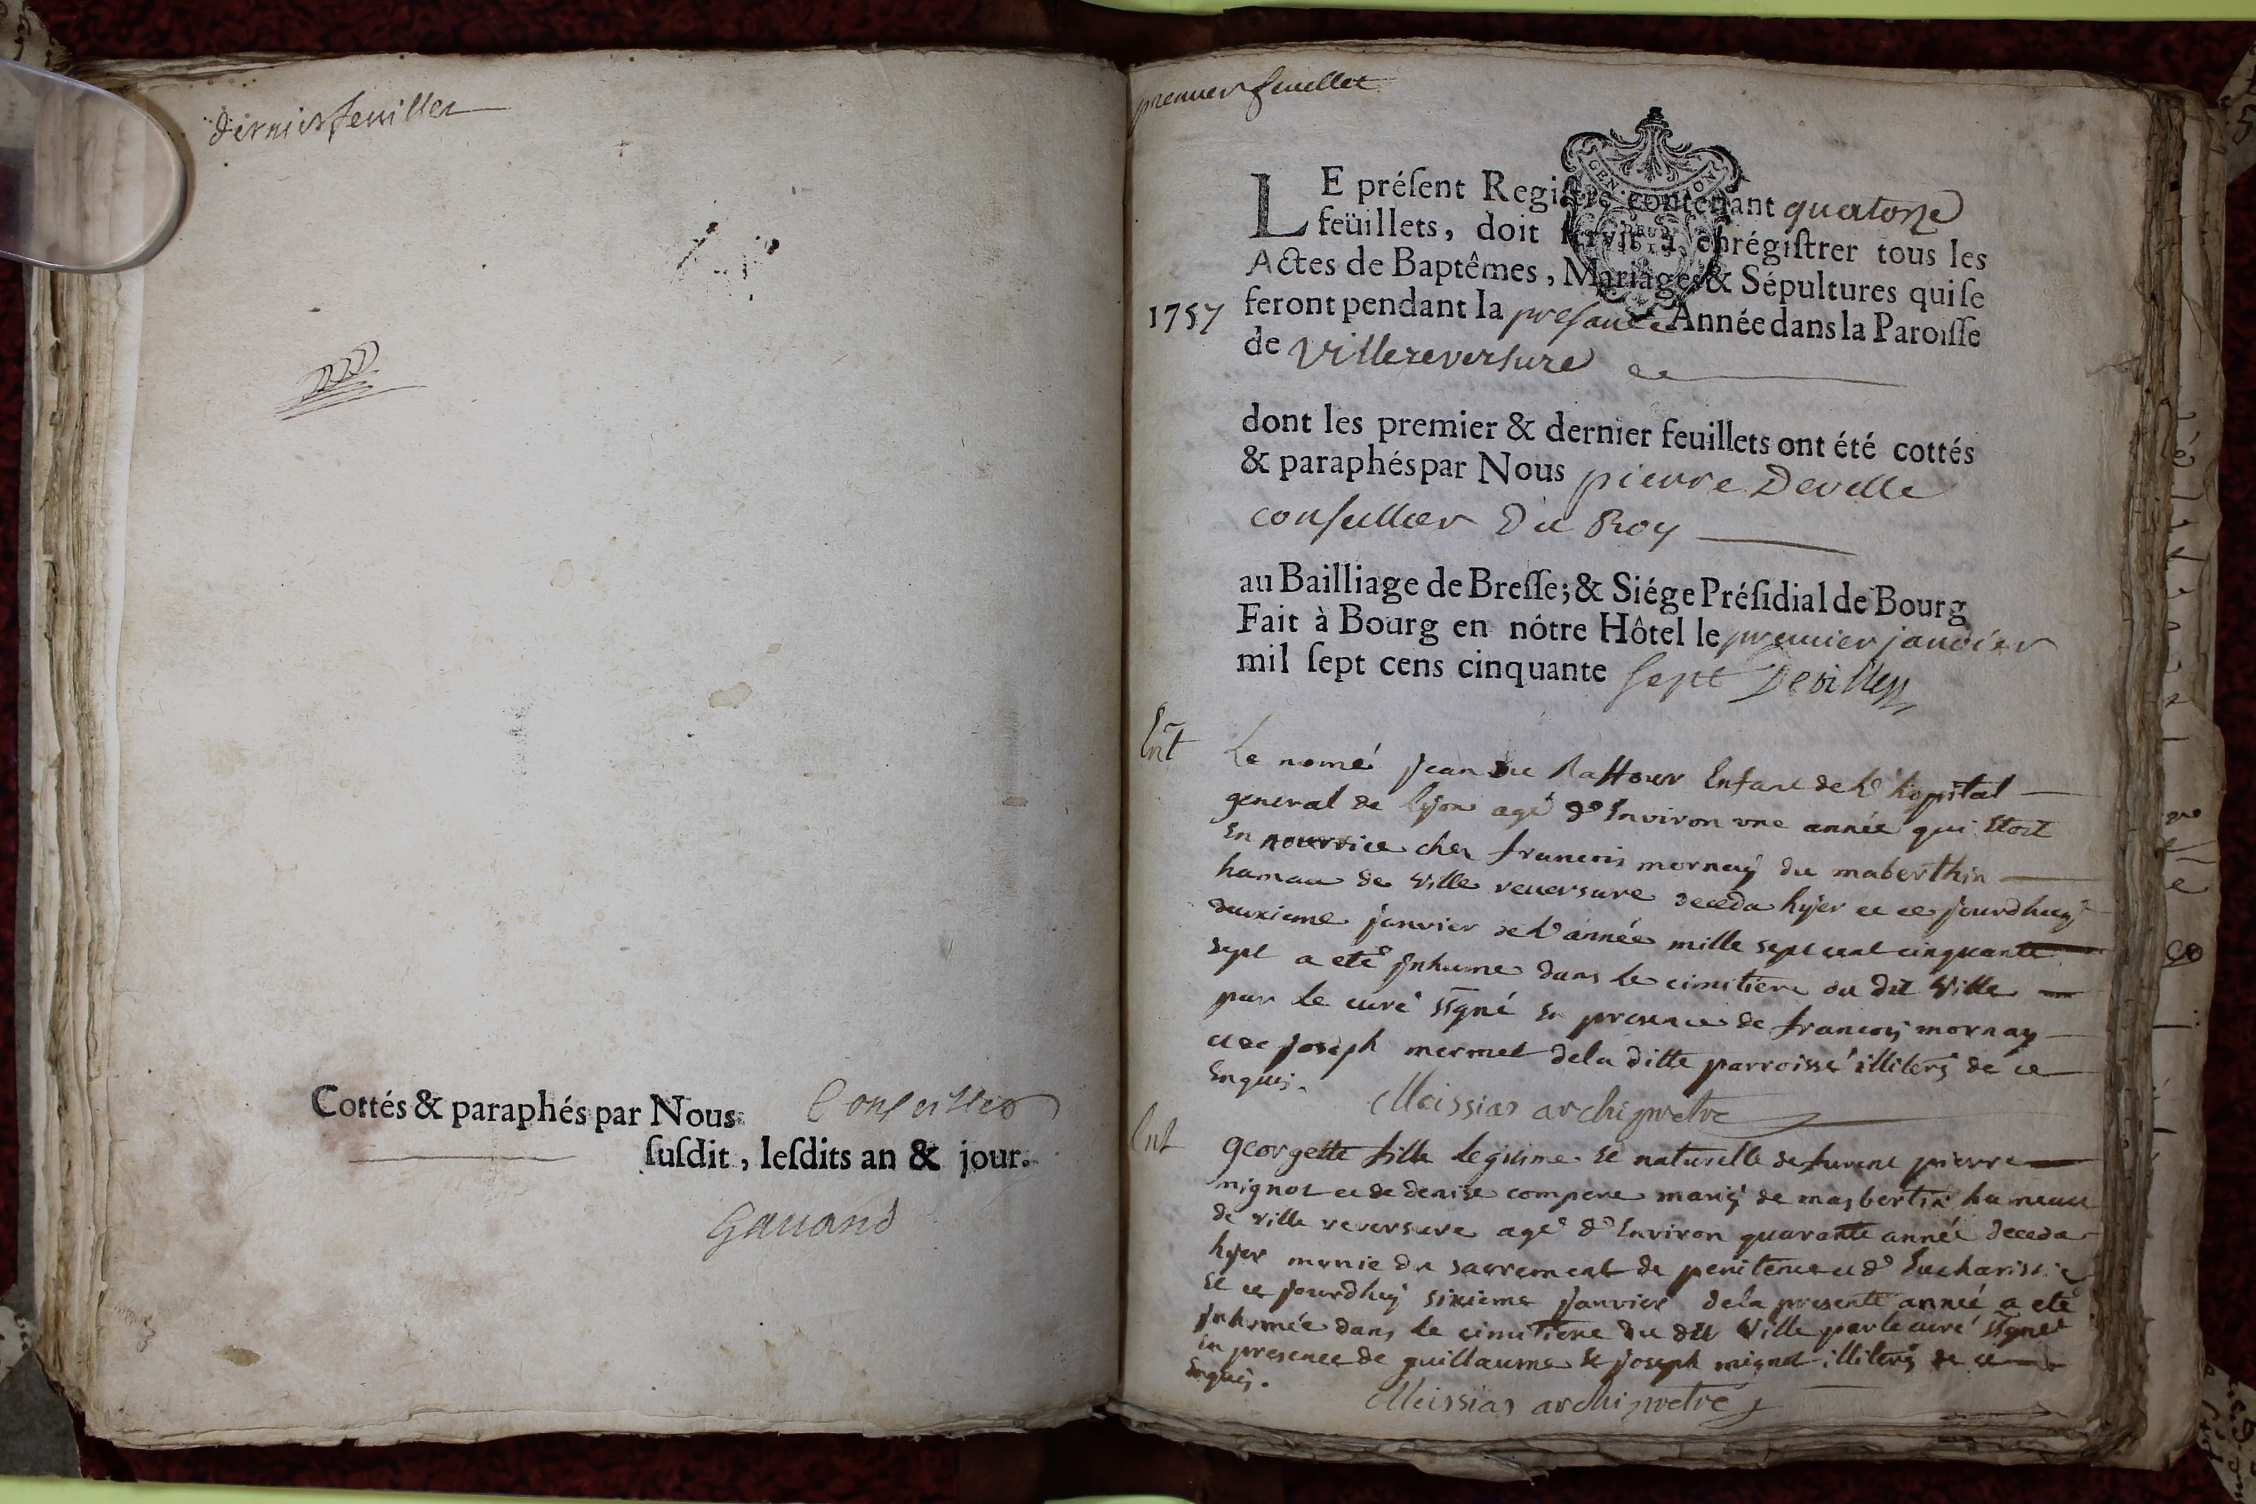 dernier feuillet
Cottés & paraphés par Nous Conseiller
susdit, lesdits an & jour.
Gauand
premier feuillet
GEN
LE présent Registre contenant quatorze
feüillets, doit servir à enrégistrer tous les
Actes de Baptêmes, Mariages & Sépultures qui se
1757 feront pendant la presante Année dans la Paroisse
de Villereversure
dont les premier & dernier feuillets ont été cottés
& paraphés par Nous pierre Deville
conseillier Du Roy
au Bailliage de Bresse; & Siége Présidial de Bourg
Fait à Bourg en nôtre Hôtel le premier janvier
mil sept cens cinquante sept Deville
Ent Le nomé jean du Rattour Enfant de l'hopital
general de lyon agé d'Environ une année qui Etoit
En nourrice chez francois mornay du maberthin
hamau de ville reversure deceda hyer et ce jourdhuy
deuxieme janvier de l'année mille sept cent cinquante
sept a eté jnhume dans le cimitiere du dit ville
par le curé ssgné En presence de francois mornay
et de joseph mermet dela ditte parroisse illiterés de ce
Enquis.
Meissias archipretre
Ent georgette fille legitime et naturelle de furent pierre
mignot et de denise compere mariés de masbertin hameau
de ville reversure agé d'Environ quarante année deceda
hyer munie du sacrement de penitence et d'Eucharistie
et ce jourdhuy sixieme janvier dela presente année a eté
jnhumée dans le cimitiere du dit ville par le curé ssgné
en presence de guillaume et joseph mignot illiterés de ce
Enquis.
Meissias archipretre